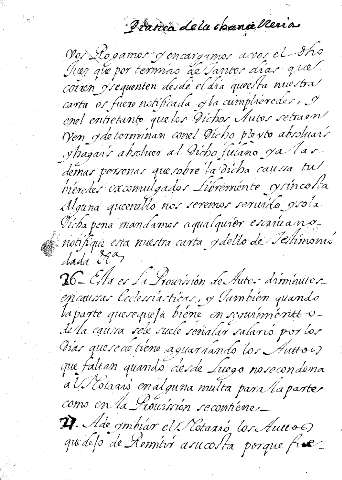 Practica de la chancilleria
Vos Rogamos y encargamos a vos el dho
Juez que por termino de tantos dias que
corren y se quenten desde el dia que esta nuestra
carta os fuere notificada y la cumplieredes, y
en el entretanto que los Dichos Autos se traen
Veen y determinan con el Dicho pleyto absolvais
y hagais absolver al Dicho fulano y a las
demas personas que sobre la dicha causa tu
bieredes excomulgados libremente y sin costa
Alguna que en ello nos seremos servido, y so la
Dicha pena mandamos a qualquier escrivano
notifique esta nuestra carta y dello de Testimonio
dada Etta
26- Esta es la Provision de Autos diminutos
en causas Ecclesiasticas, y tambien quando
la parte que se queja biene en seguimiento
de la causa se le suele señalar salario por los
Dias que se detiene aguardando los Autos
que faltan quando desde Luego no se condena
a el Notario en alguna multa para la parte
como en la Provission se contiene-
27- A de imbiar el Notario los Autos
que dejo de Remitir a su costa porque fue-